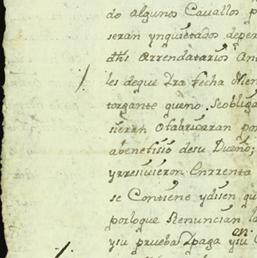 do algunos Cavallos p
seran ynquietados deper
dhs Arrendatarios An
les deque Dra fecha Mien
torgante queno Seobliga
sieren Ofabricaran por
abenefisio desu Dueño;
yrresivieron Enrrenta
se Contiene ydisen qu
porloque Renuncian la
en
ysu prueba Zpaga ysu